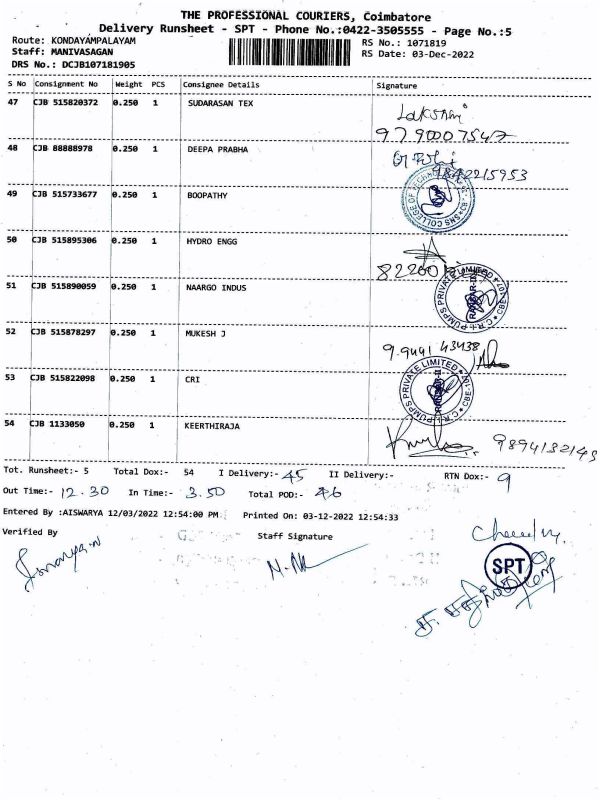 THE PROFESSIONAL COURIERS, Coimbatore
Delivery Runsheet - SPT - Phone No.:0422-3505555 - Page No.:5
Route: KONDAYAMPALAYAM
RS No.: 1071819
Staff: MANIVASAGAN
RS Date: 03-Dec-2022
DRS No.: DCJB107181905
S No Consignment No Weight PCS Consignee Details Signature
47 CJB 515820372 0.250 1 SUDARASAN TEX
9790007547
48 CJB 88888978 0.250 1 DEEPA PRABHA
9842215953
49 CJB 515733677 0.250 1 BOOPATHY
SNS COLLEGE OF
50 CJB 515895306 0.250 1 HYDRO ENGG
82200
51 CJB 515890059 0.250 1 NAARGO INDUS
C.R.I. PUMPS PRIVATE LIMITED
52 CJB 515878297 0.250 1 MUKESH J
9.9441 43438
53 CJB 515822098 0.250 1 CRI
C.R.I. PUMPS PRIVATE LIMITED
54 CJB 1133050 0.250 1 KEERTHIRAJA
Tot. Runsheet:- 5 Total Dox:- 54 I Delivery:- 45 II Delivery:- RTN Dox:- 9
Out Time:- 12.30 In Time:- 3.50 Total POD:- 46
Entered By :AISWARYA 12/03/2022 12:54:00 PM Printed On: 03-12-2022 12:54:33
Verified By
Staff Signature
SPT